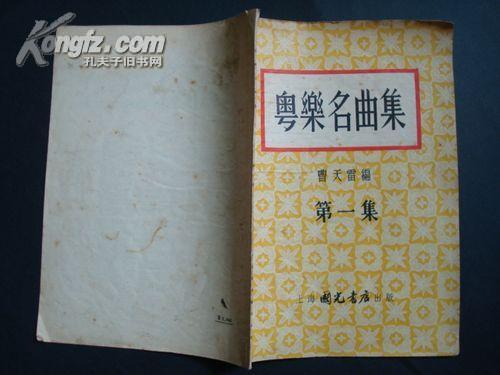 Kongfz.com
孔夫子旧书网
粤樂名曲集
曹天雷編
第一集
上海國光書店出版